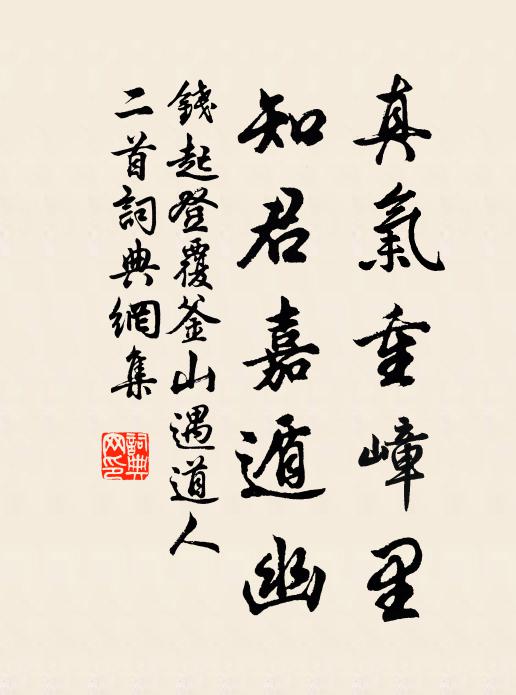 真氣重嶂里
知君嘉遁幽
錢起登覆釜山遇道人
二首詞典網集
詞典网印